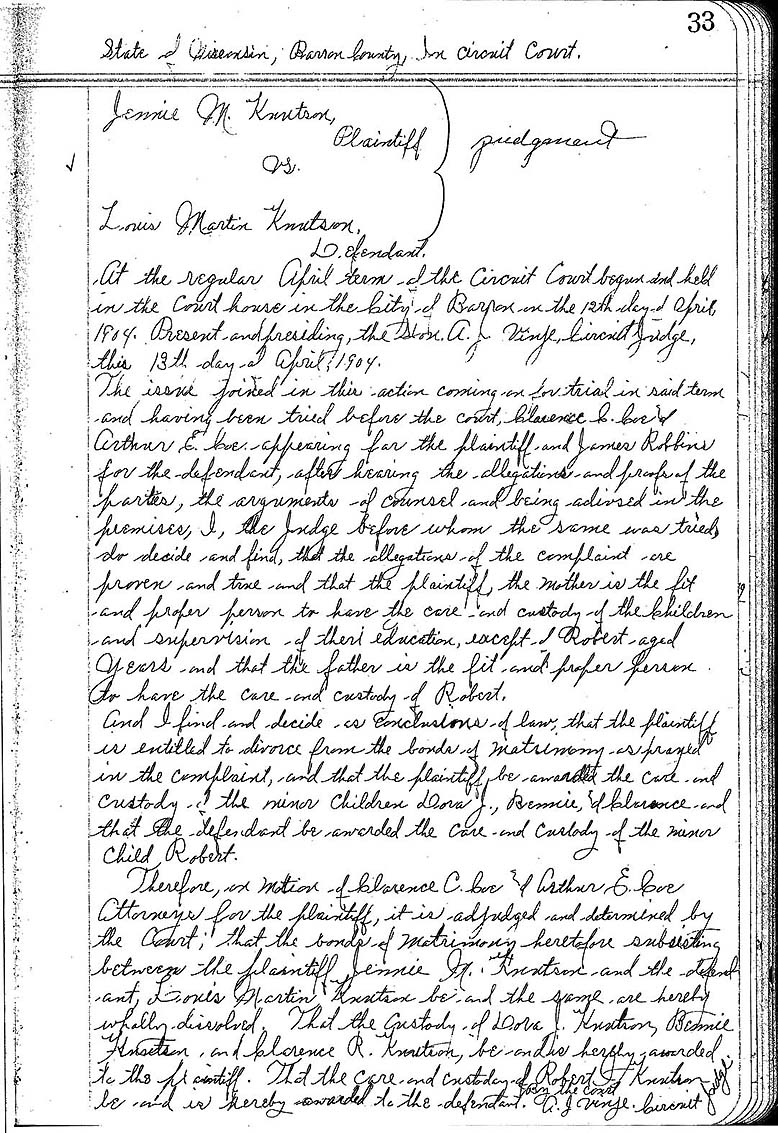 33
State of Wisconsin, Barron County, In Circuit Court.
Jennie M. Knutson,
Plaintiff
vs.
judgment
Louis Martin Knutson,
Defendant.
At the regular April term of the Circuit Court begun and held
in the Court house in the City of Barron on the 12th day of April,
1904. Present and presiding, the Hon. A. J. Vinje, Circuit Judge,
this 13th day of April, 1904.
The issue joined in this action coming on for trial in said term
and having been tried before the court, Clarence C. Coe &
Arthur E. Coe appearing for the plaintiff and James Robbins
for the defendant, after hearing the allegations and proofs of the
parties, the arguments of counsel and being adivsed in the
premises, I, the Judge before whom the same was tried,
do decide and find, that the allegations of the complaint are
proven and true and that the plaintiff, the mother is the fit
and proper person to have the care and custody of the children
and supervision of theri education, except of Robert aged
Years and that the father is the fit and proper person
to have the care and custody of Robert.
And I find and decide as conclusions of law, that the plaintiff
is entitled to divorce from the bonds of matrimony as prayed
in the complaint, and that the plaintiff be awarded the care and
custody of the minor children Dora J., Bennie, & Clarence and
that the defendant be awarded the care and custody of the minor
child, Robert.
Therefore, on motion of Clarence C. Coe & Arthur E. Coe
Attorneys for the plaintiff, it is adjudged and determined by
the Court; that the bonds of matrimony heretofore subsisting
between the plaintiff Jennie M. Knutson and the defend
ant, Louis Martin Knutson be and the same are hereby
wholly dissolved. That the custody of Dora J. Knutson, Bennie
Knutson, and Clarence R. Knutson, be and is hereby awarded
to the plaintiff. That the care and custody of Robert Knutson
be and is hereby awarded to the defendant. By the court A. J. Vinje. Circuit Judge.